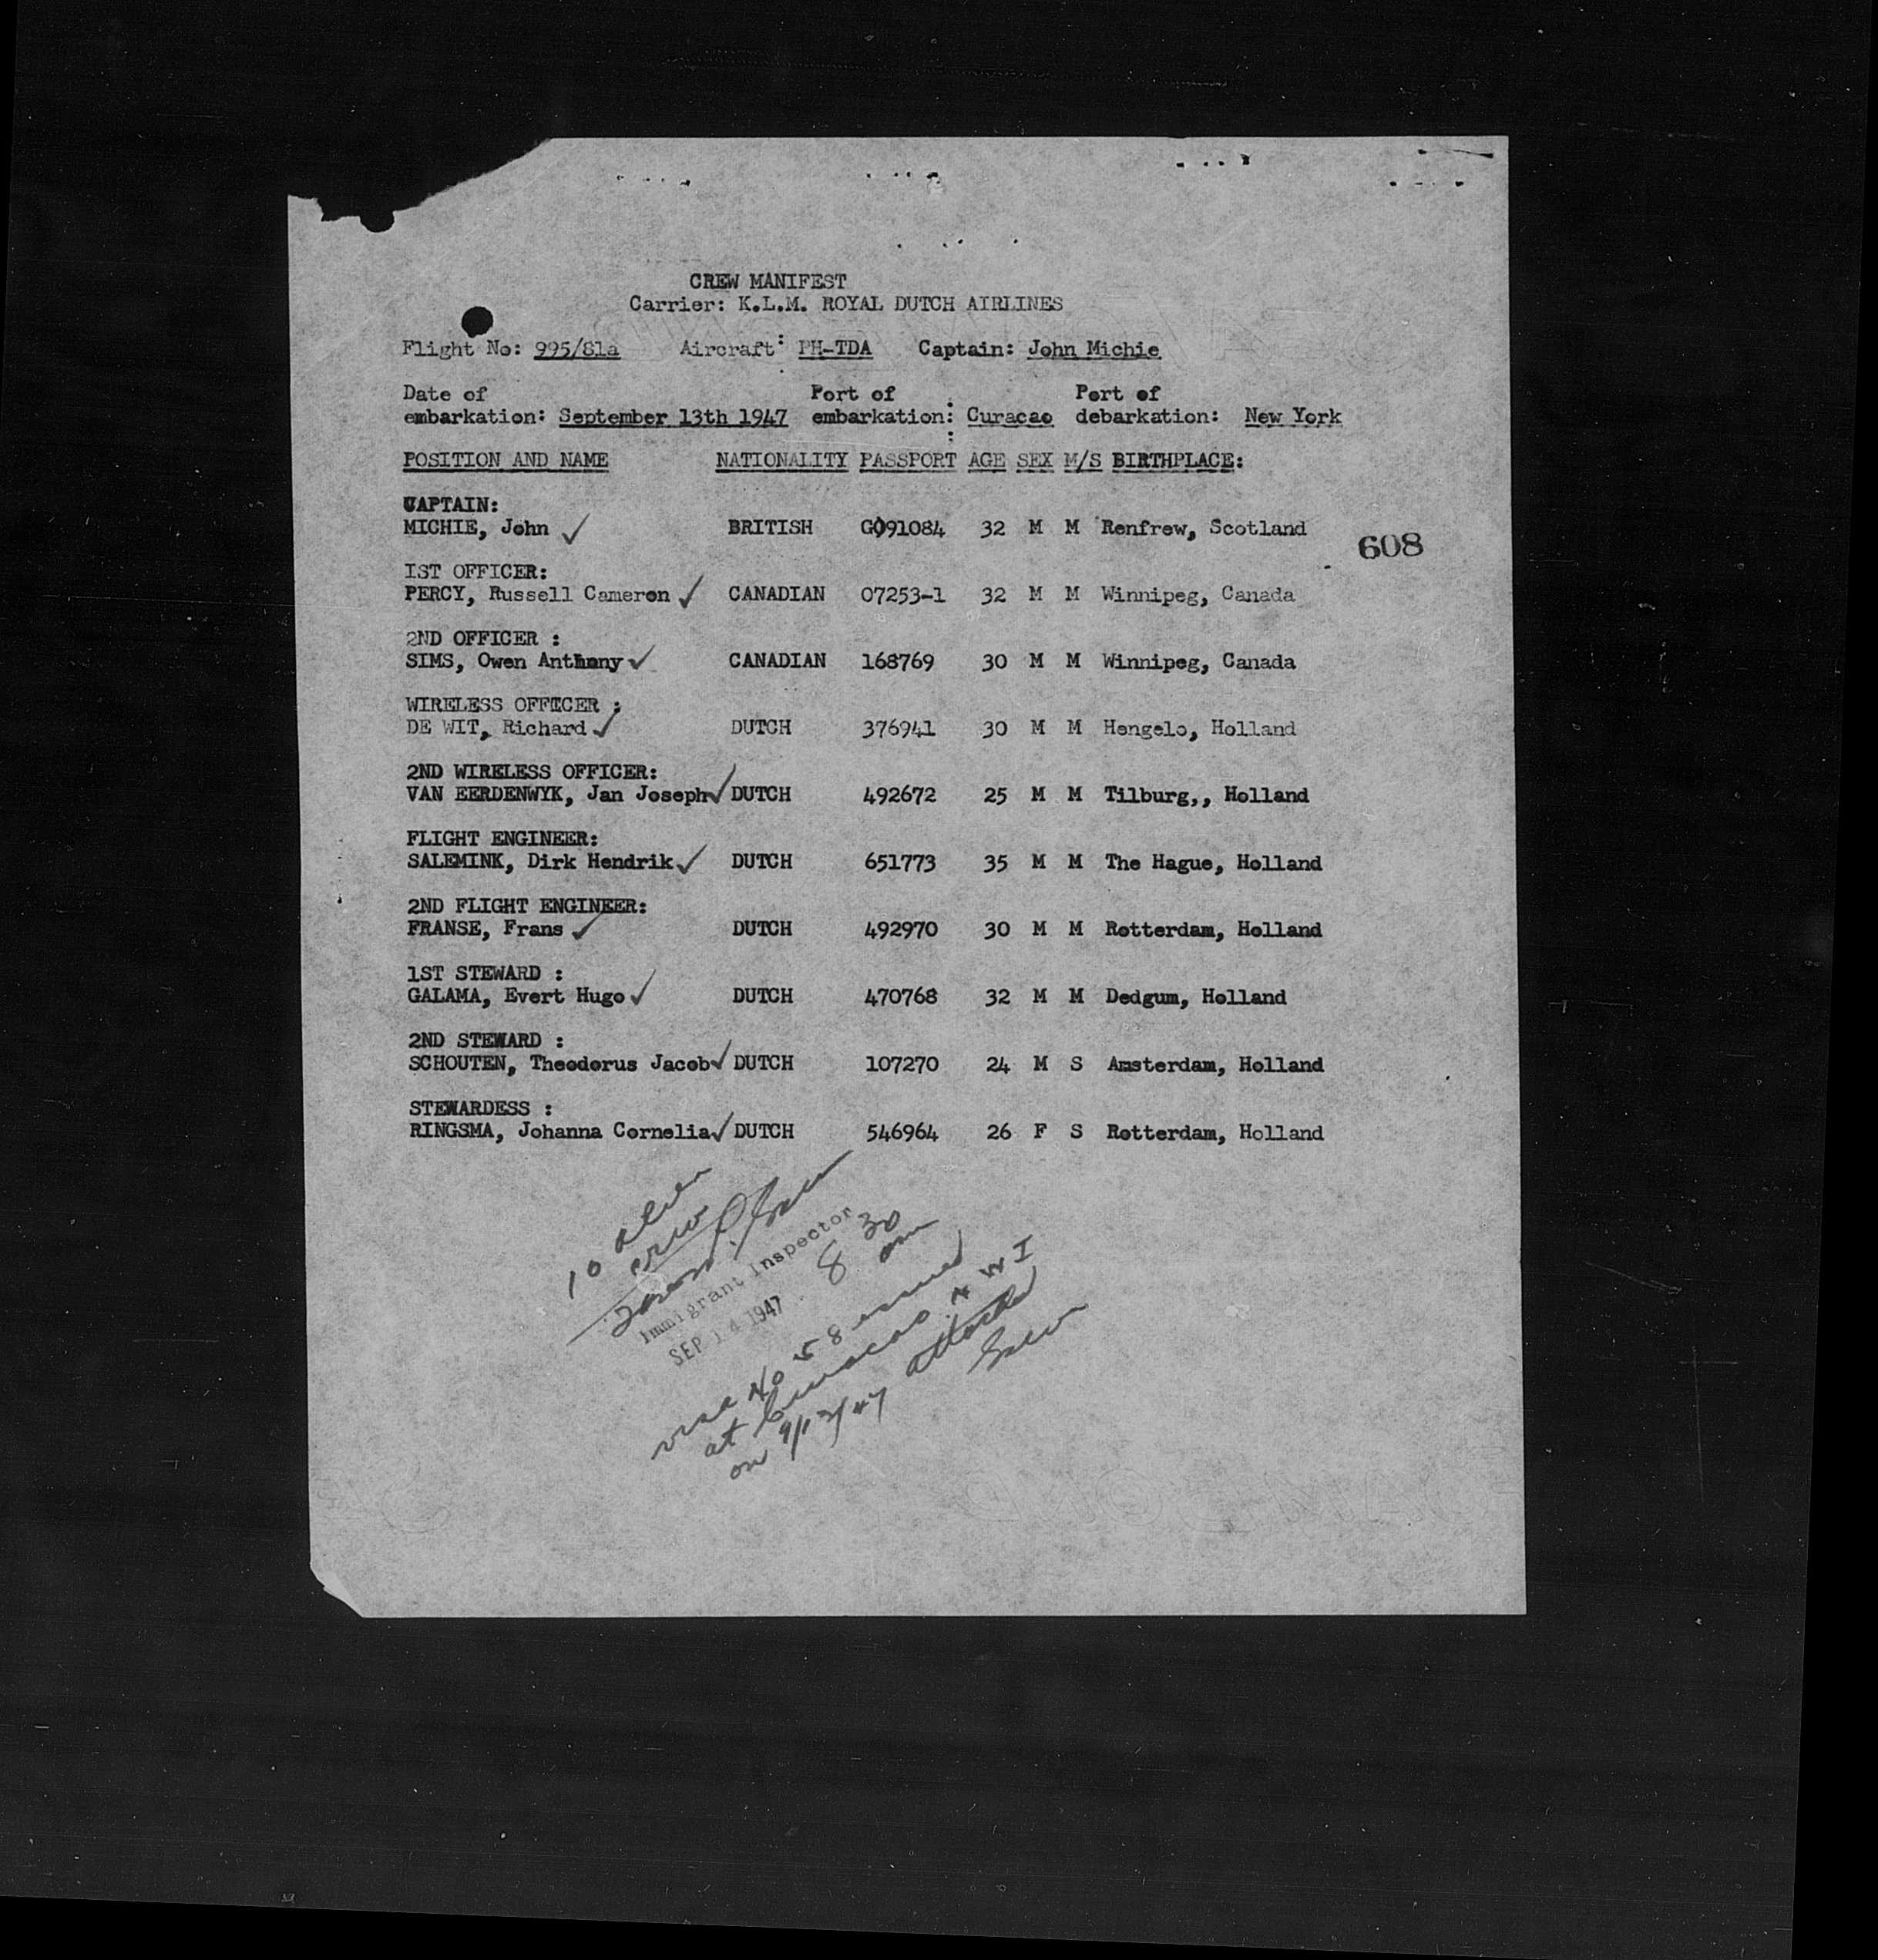 CREW MANIFEST
Carrier: K.L.M. ROYAL DUTCH AIRLINES
Flight No: 995/81a Aircraft: PH-TDA Captain: John Michie
Date of Port of Port of
embarkation: September 13th 1947 embarkation: Curacao debarkation: New York
POSITION AND NAME NATIONALITY PASSPORT AGE SEX M/S BIRTHPLACE:
CAPTAIN:
MICHIE, John ✓ BRITISH G091084 32 M M Renfrew, Scotland
608
IST OFFICER:
PERCY, Russell Cameron ✓ CANADIAN 07253-1 32 M M Winnipeg, Canada
2ND OFFICER :
SIMS, Owen Anthony ✓ CANADIAN 168769 30 M M Winnipeg, Canada
WIRELESS OFFICER :
DE WIT, Richard ✓ DUTCH 376941 30 M M Hengelo, Holland
2ND WIRELESS OFFICER:
VAN EERDENWYK, Jan Joseph ✓ DUTCH 492672 25 M M Tilburg,, Holland
FLIGHT ENGINEER:
SALEMINK, Dirk Hendrik ✓ DUTCH 651773 35 M M The Hague, Holland
2ND FLIGHT ENGINEER:
FRANSE, Frans ✓ DUTCH 492970 30 M M Rotterdam, Holland
1ST STEWARD :
GALAMA, Evert Hugo ✓ DUTCH 470768 32 M M Dedgum, Holland
2ND STEWARD :
SCHOUTEN, Theodorus Jacob ✓ DUTCH 107270 24 M S Amsterdam, Holland
STEWARDESS :
RINGSMA, Johanna Cornelia ✓ DUTCH 546964 26 F S Rotterdam, Holland
10 alien
crew
Immigrant Inspector
SEP 14 1947 8 30 am
visa No 58 issued
at Curacao N W I
on 9/13/47 attached